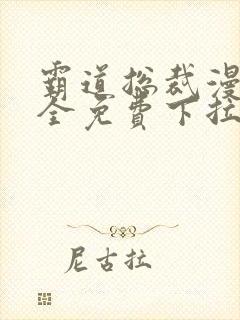 霸道总裁漫
全免費下拉
尼古拉